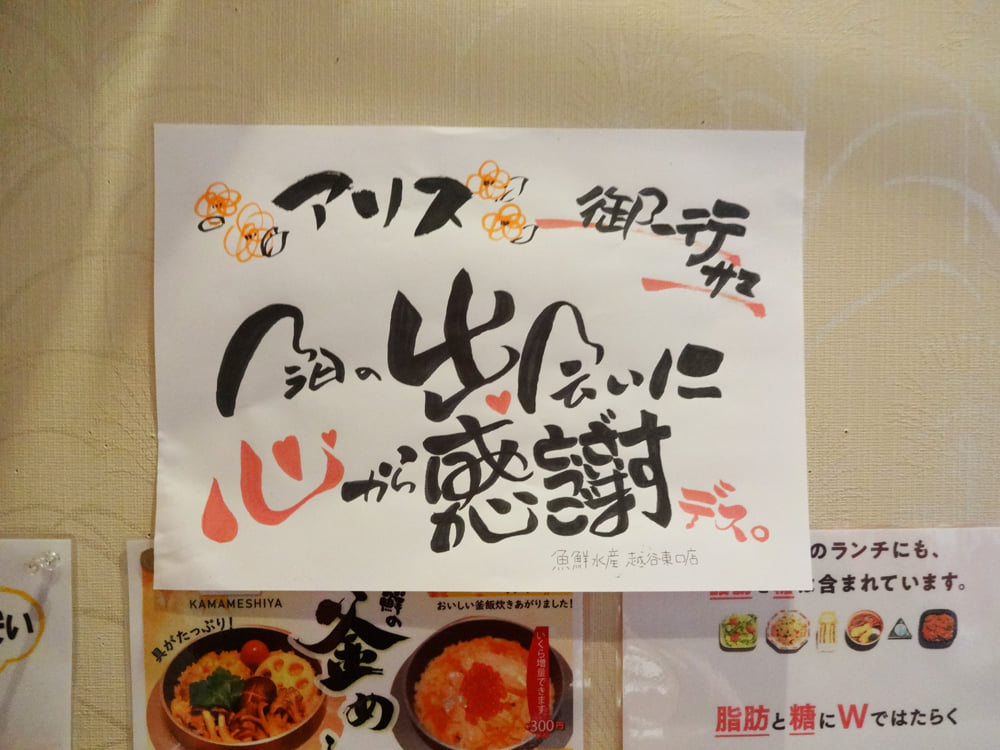 アリス 御一行サマ
今日の出会いに
心から感謝デス。
魚鮮水産 越谷東口店
のランチにも、
含まれています。
脂肪と糖にWではたらく
KAMAMESHIYA
具がたっぷり!
鮮の
釜め
おいしい釜飯炊きあがりました!
いくら増量できます。
300円
い